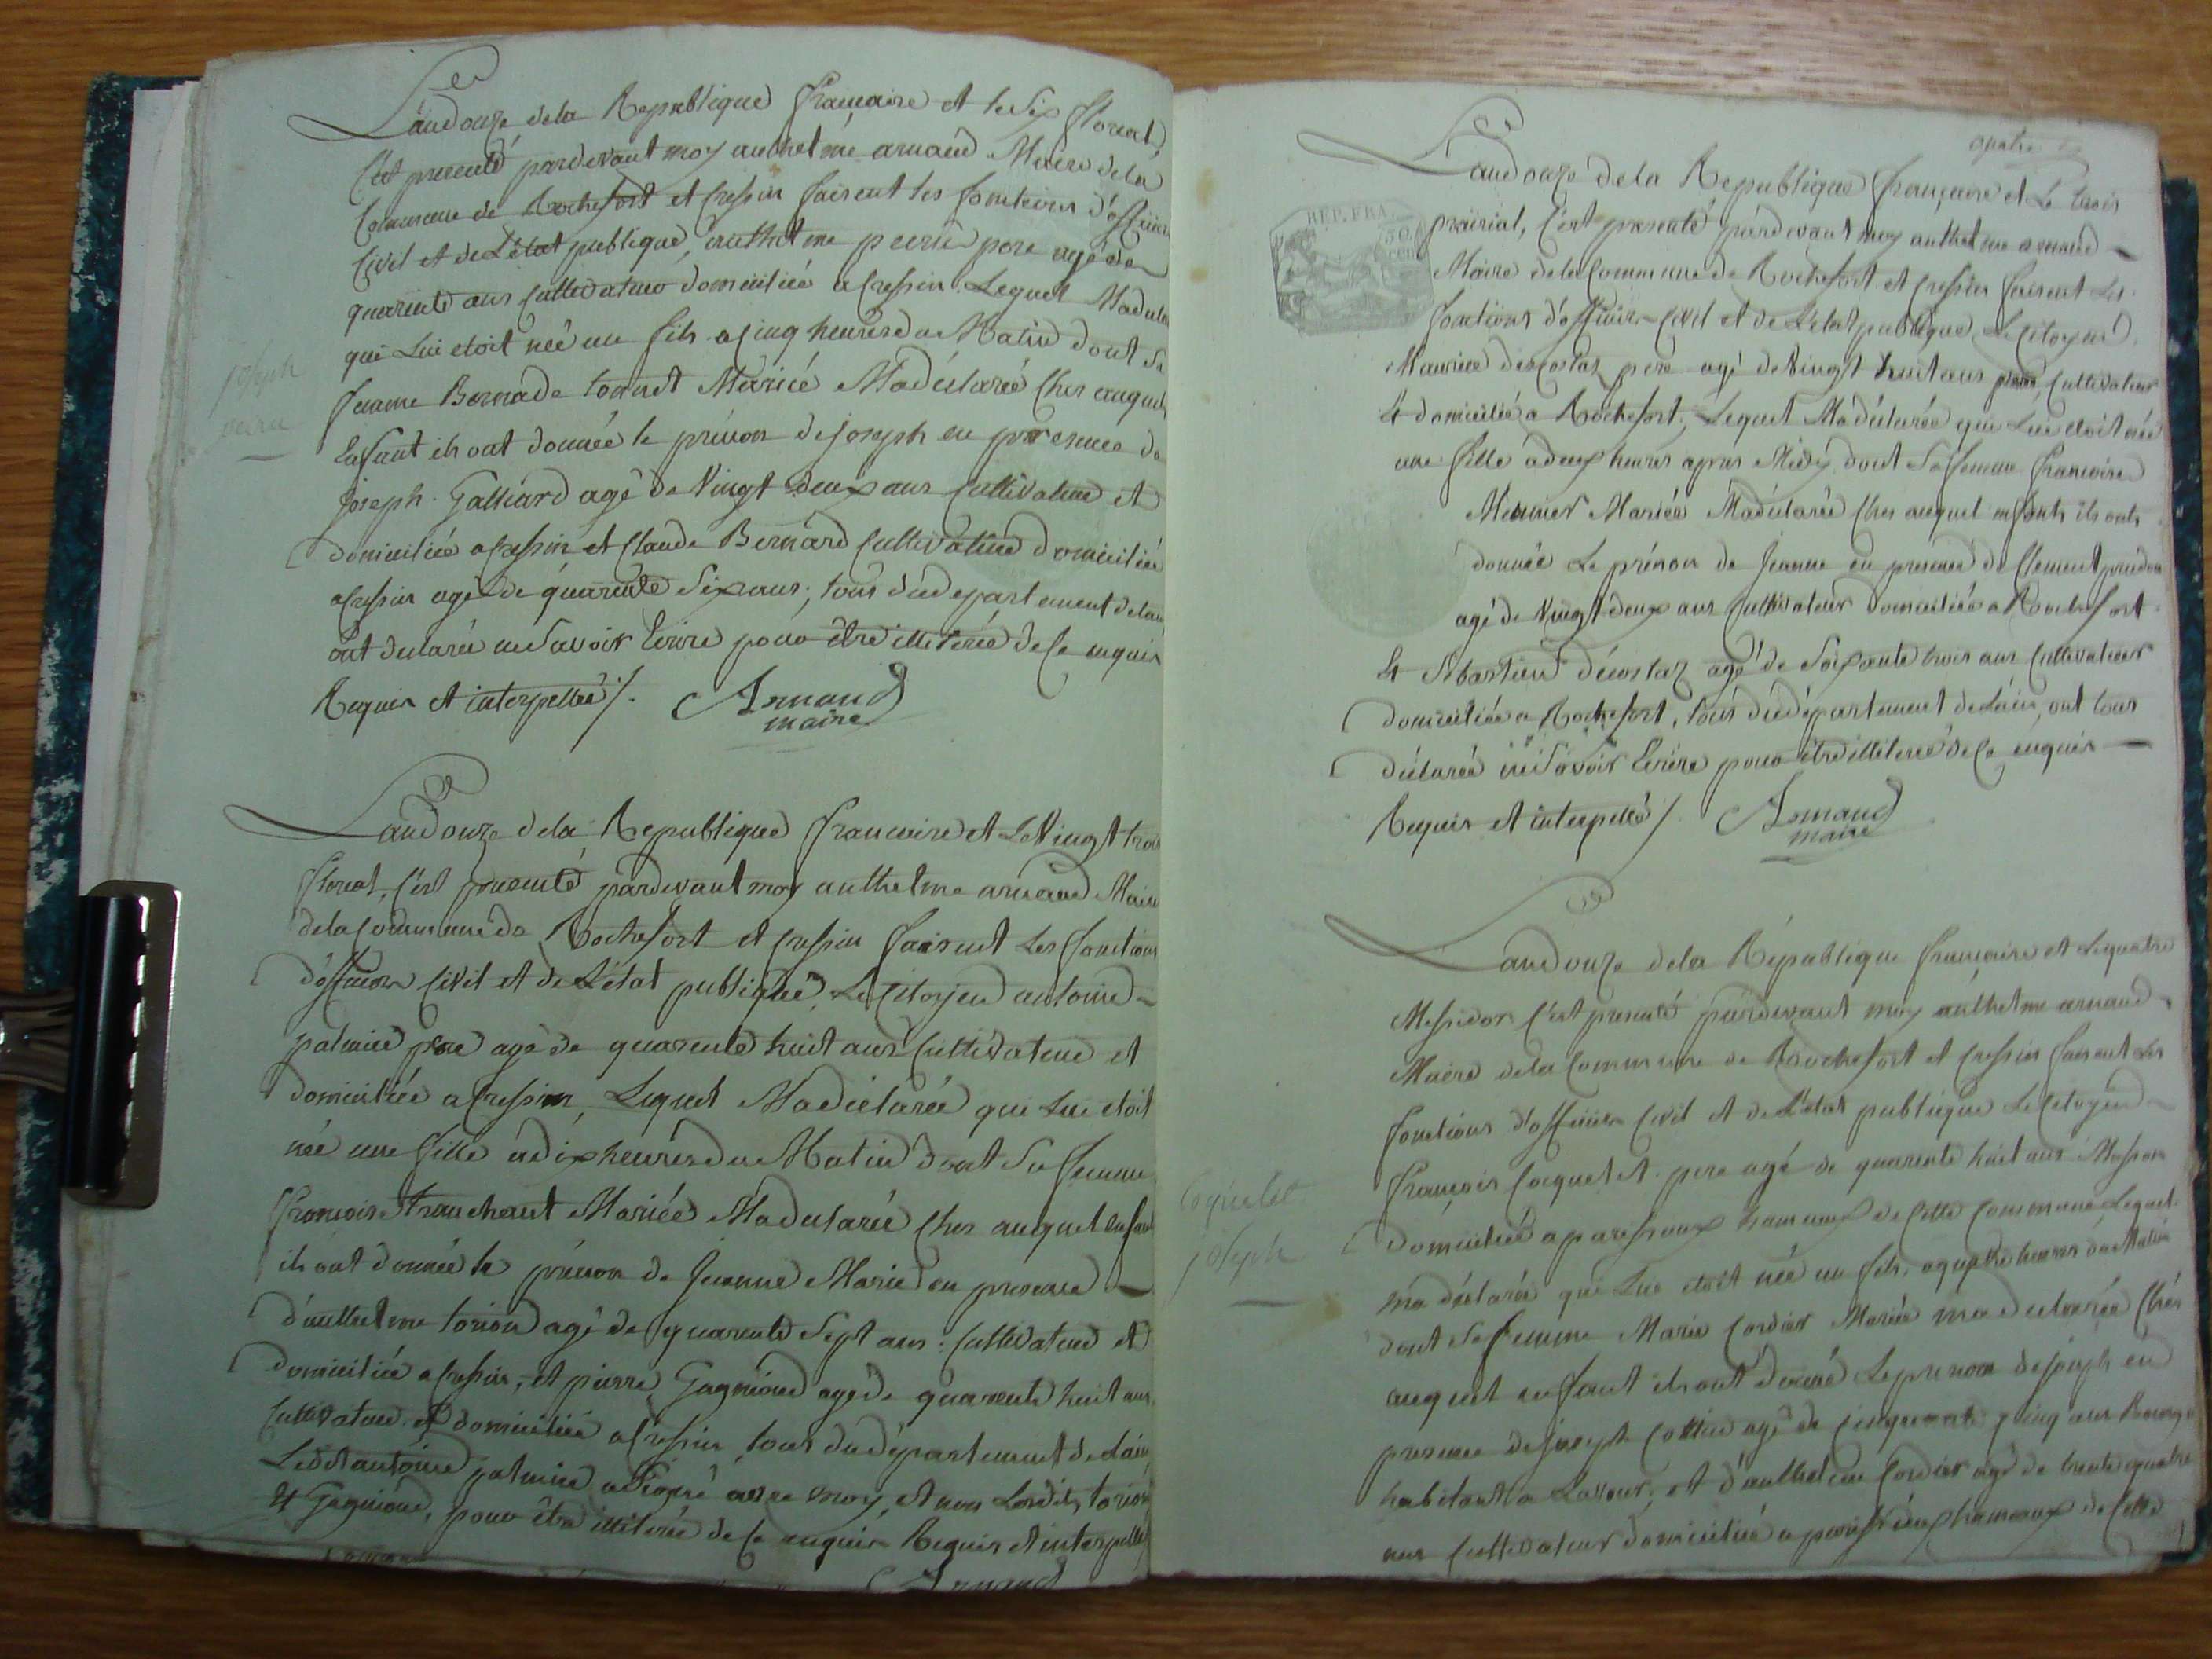 L'an douze de la Republique francaise et le Six floreal
C'est presenté pardevant moy anthelme arnaud Maire de la
Commune de Rochefort et Cressin faisent les fonctions d'officier
Civil et de L'état publique, anthelme perin pere agé de
quarente ans Cultivateur domicilié a Cressin Lequel Madeclar
que Lui etoit neé un fils a cinq heures du Matin dont Sa
femme Bernade tornet Mariée Madéclareé Cher auquel
Enfant ils ont donnée le prénom de joseph en presence de
joseph Galliard agé de Vingt deux ans Cultivateur et
domiciliée a Cressin et Claude Bernard Cultivateur domiciliée
a Cressin agé de quarente Six ans, tous du departement de lain
ont declarée ne Savoir Ecrire pour être illiterée de Ce enquis
Requis et interpellée /. Arnaud
maire
joseph
perin
L'an douze de la Republique francaire et Le Vingt trois
floreal, C'est presenté pardevant moy anthelme arnaud Maire
de la Commune de Rochefort et Cressin faisent Les fonctions
d'officier Civil et de L'état publique, Le Citoyen antoine
palmier pere agé de quarente huit ans Cultivateur et
domiciliée a Cressin, Lequel Madéclarée que Lui etoit
née une fille a dix heures du Matin dont Sa femme
francoise tranchent Mariée Madeclarée Cher auquel enfant
ils ont donnée le prénom de Jeanne Marie en presence
d'anthelme torion agé de quarente Sept ans Cultivateur et
domiciliée a Cressin, et pierre Gagnioud agé de quarente huit ans
Cultivateur et domiciliée a Cressin, tous du département de Lain
Ledit antoine palmier a Signé avec moy, et non Lesdits torion
et Gagnioud, pour être illiterée de Ce enquis Requis et interpellé
Arnaud
quatre
REP. FRA.
50
cent
L'an douze de la Republique française et Le trois
prairial, C'est presenté pardevant moy anthelme arnaud
Maire de la Commune de Rochefort et Cressin faisent Les
fonctions d'officier Civil et de L'état publique Le Citoyen
Maurice decostaz pere agé de Vingt huit ans Cultivateur
et domiciliée a Rochefort, Lequel Madéclarée que Lui etoit née
une fille a deux heures apres Midy, dont Sa femme francoise
Meunier Mariée Madéclarée Cher auquel enfents ils onts
donnée Le prénom de Jeanne en presence de Clement prudon
agé de Vingt deux ans Cultivateur domiciliée a Rochefort
et Sébastien décostaz agé de Soixante trois ans Cultivateur
domiciliée a Rochefort, tous du département de Lain, ont tous
déclarée ne Savoir Ecrire pour être illiterée de Ce enquis
Requis et interpellé /. Arnaud
maire
L'an douze de la République française et Le quatre
Messidor C'est presenté pardevant moy anthelme arnaud
Maire de la Commune de Rochefort et Cressin faisent Les
fonctions d'officier Civil et de L'état publique Le Citoyen
françois Coquelet pere agé de quarente huit ans Masson
domiciliée a parissieux hameaux de Cette Commune, Lequel
ma déclarée que Lui etoit née un fils, a quatre heures du Matin
dont Sa femme Marie Cordier Mariée ma declarée Cher
auquel enfant ils ont donné Le prenom de joseph en
presence de joseph Collin agé de Cinquente Cinq ans
habitant a Lavour, et d'anthelme Cordier agé de trente quatre
ans Cultivateur domiciliée a parissieux hameaux de Cette
Coquelet
joseph